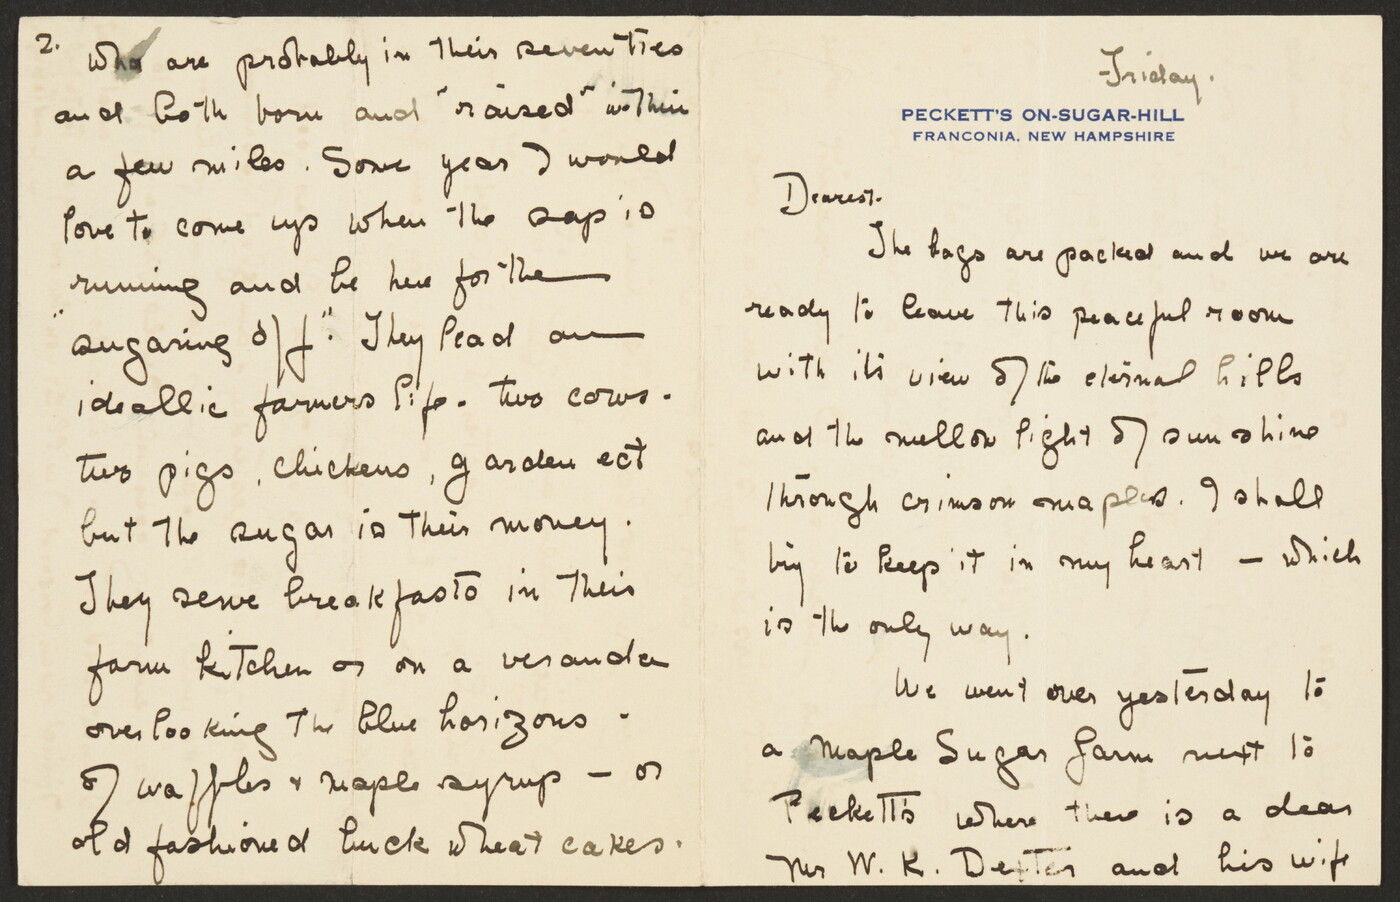 Friday.
PECKETT'S ON-SUGAR-HILL
FRANCONIA, NEW HAMPSHIRE
Dearest.
The bags are packed and we are
ready to leave this peaceful room
with its view of the eternal hills
and the mellow light of sunshine
through crimson maples. I shall
try to keep it in my heart — which
is the only way.
We went over yesterday to
a Maple Sugar farm next to
Peckett's where there is a dear
Mr W. K. Dexter and his wife
2.
who are probably in their seventies
and both born and "raised" within
a few miles. Some year I would
love to come up when the sap is
running and be here for the
"sugaring off". They lead an
ideallic farmers life. two cows.
two pigs, chickens, garden ect
but the sugar is their money.
They serve breakfasts in their
farm kitchen or on a veranda
overlooking the blue horizons -
of waffles & maple syrup — or
old fashioned buck wheat cakes.